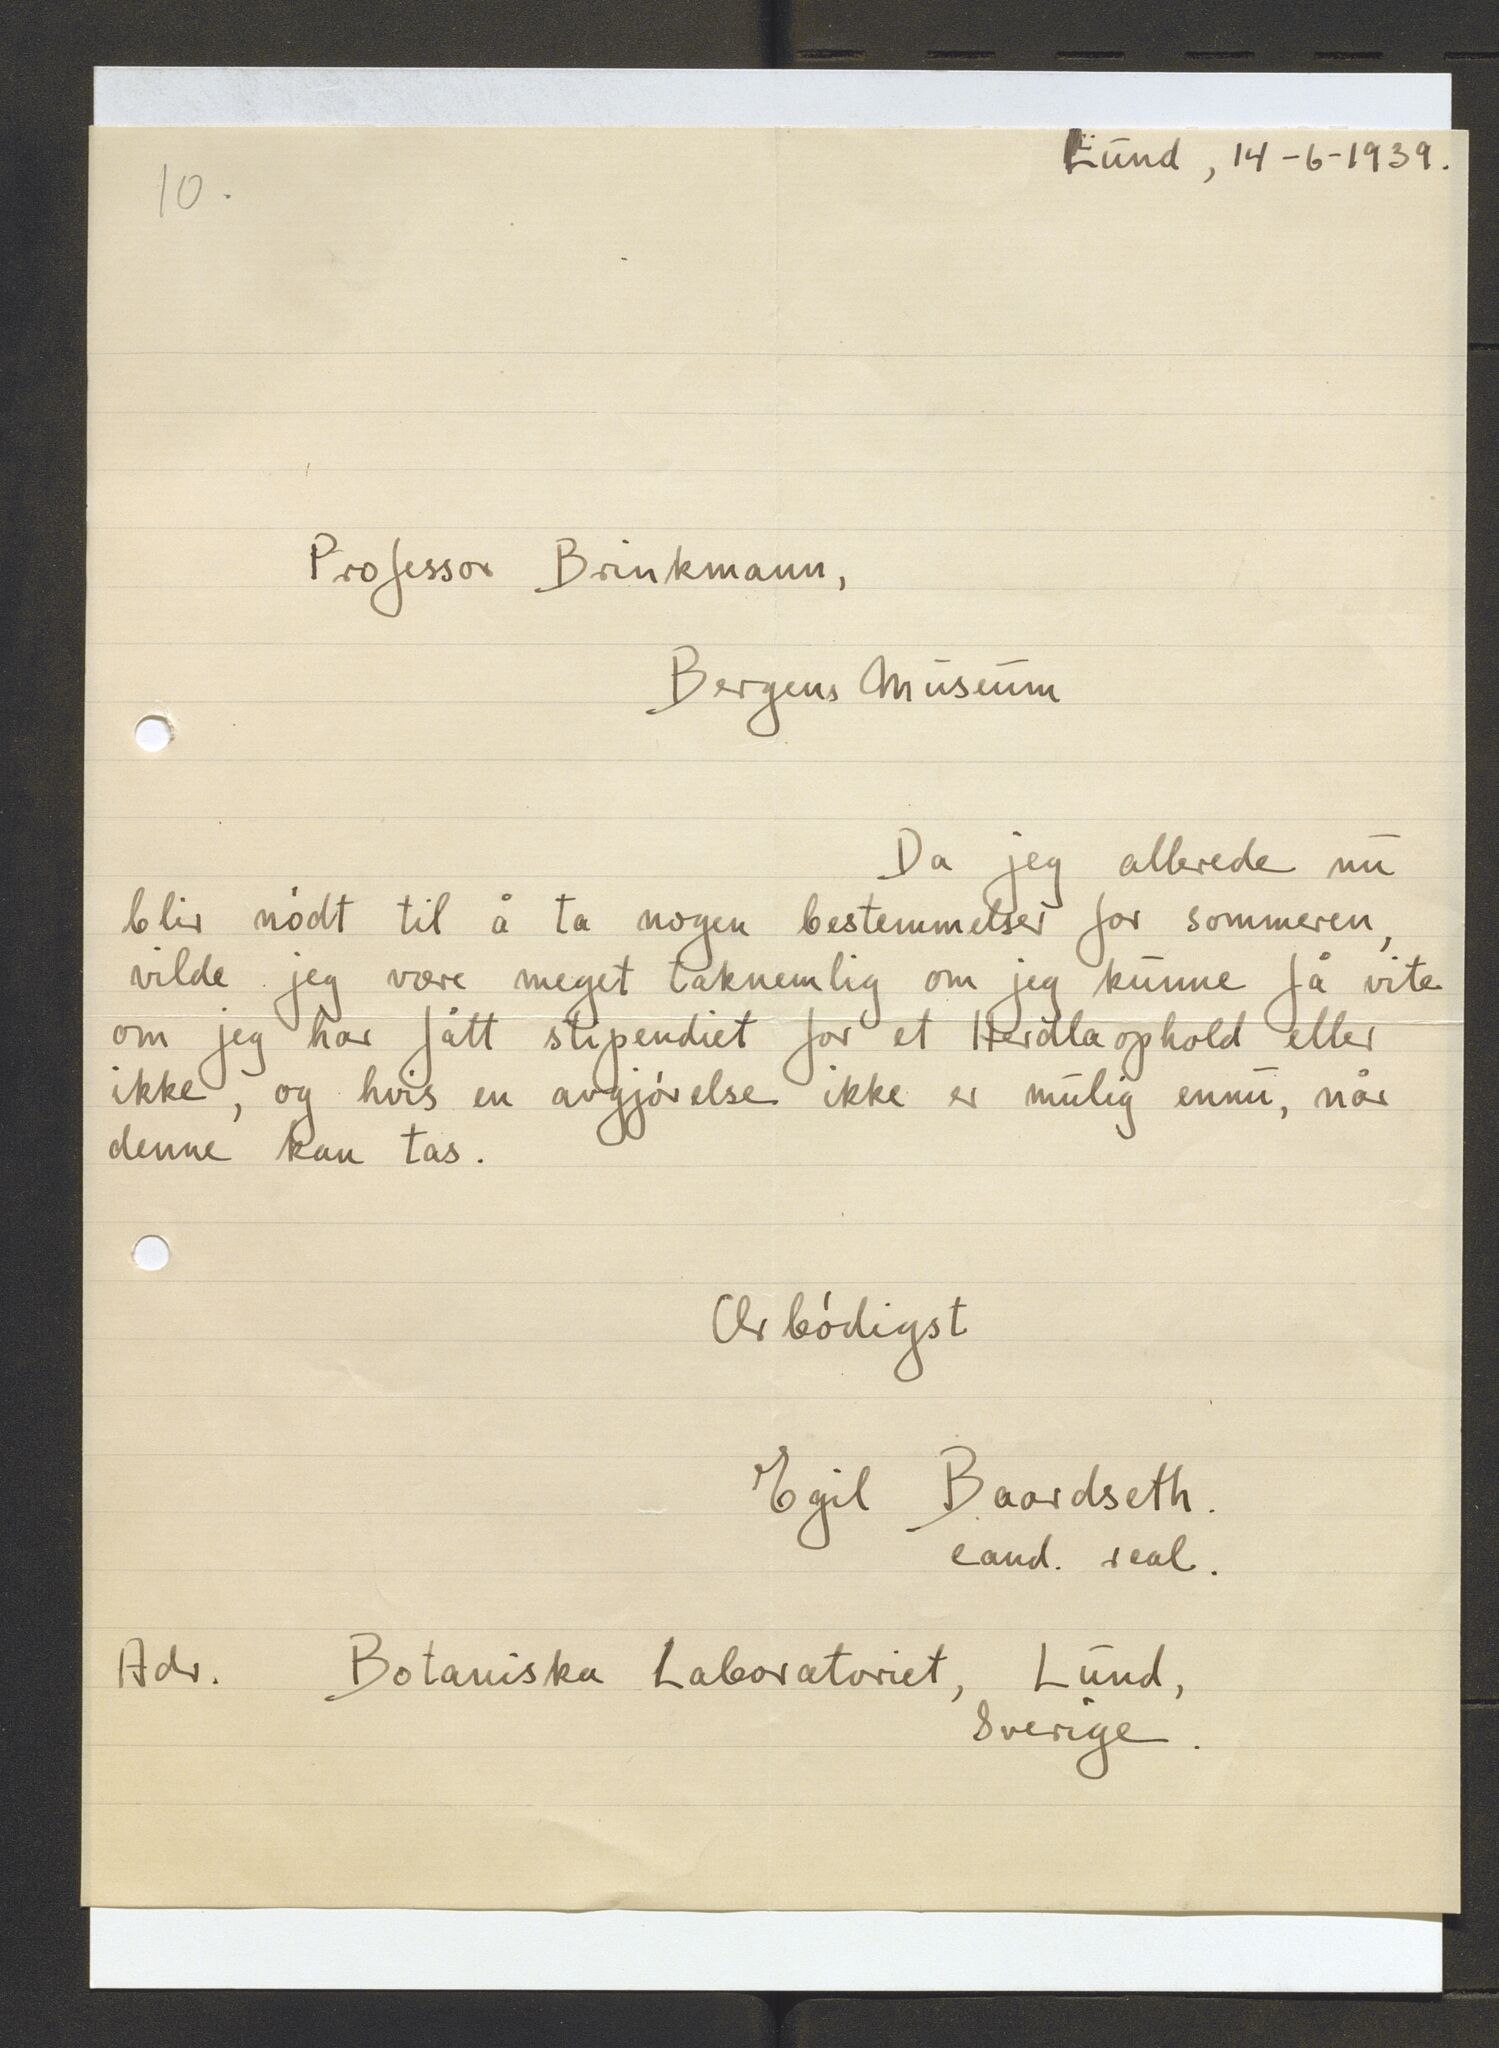 Lund, 14-6-1939.
10.
Professor Brinkmann,
Bergens Museum
Da jeg allerede nu
blir nödt til å ta nogen bestemmelser for sommeren,
vilde jeg være meget taknemlig om jeg kunne få vite
om jeg har fått stipendiet for et Herdlaophold eller
ikke, og hvis en avgjörelse ikke er mulig ennu, når
denne kan tas.
Ærbödigst
Egil Baardseth.
cand. real.
Adr. Botaniska Laboratoriet, Lund,
Sverige.